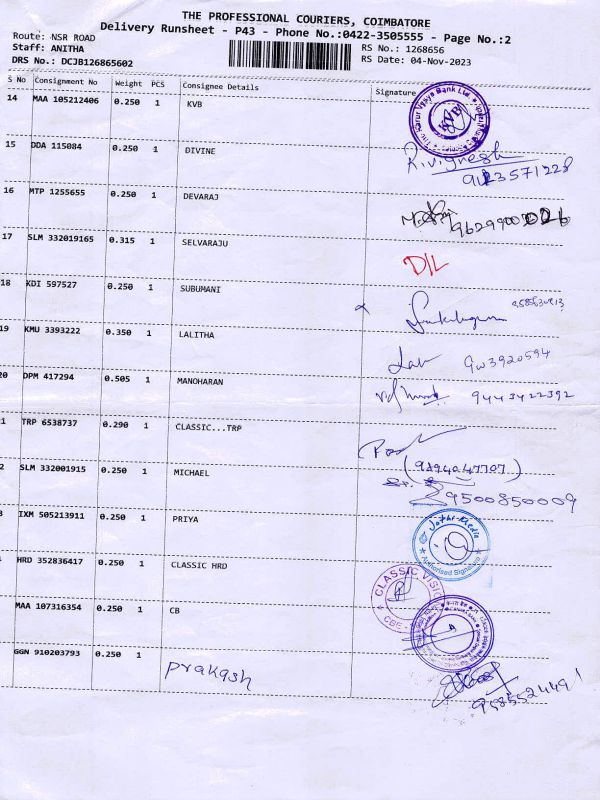 THE PROFESSIONAL COURIERS, COIMBATORE
Delivery Runsheet - P43 - Phone No.:0422-3505555 - Page No.:2
Route: NSR ROAD
Staff: ANITHA
DRS No.: DCJB126865602
RS No.: 1268656
RS Date: 04-Nov-2023
S No Consignment No Weight PCS Consignee Details Signature
14 MAA 105212406 0.250 1 KVB
The Karur Vysya Bank Ltd.
KVB
15 DDA 115084 0.250 1 DIVINE
R.Vignesh
16 MTP 1255655 0.250 1 DEVARAJ
17 SLM 332019165 0.315 1 SELVARAJU
DIL
18 KDI 597527 0.250 1 SUBUMANI
19 KMU 3393222 0.350 1 LALITHA
20 DPM 417294 0.505 1 MANOHARAN
9443422392
1 TRP 6538737 0.290 1 CLASSIC...TRP
2 SLM 332001915 0.250 1 MICHAEL
9500850009
3 IXM 505213911 0.250 1 PRIYA
Authorised Signatory
HRD 352836417 0.250 1 CLASSIC HRD
CLASSIC VISION
CBE
MAA 107316354 0.250 1 CB
GGN 910203793 0.250 1 prakash